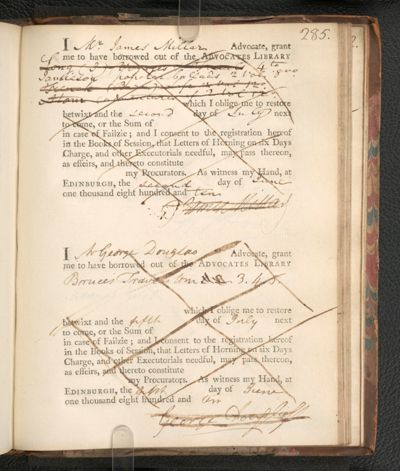 285.
I Mr James Millar Advocate, grant
me to have borrowed out of the ADVOCATES LIBRARY
4 to
2 vol. 8vo
which I oblige me to restore
betwixt and the second day of July next
to come, or the Sum of
in case of Failzie; and I consent to the registration hereof
in the Books of Session, that Letters of Horning on six Days
Charge, and other Executorials needful, may pass thereon,
as effeirs, and thereto constitute
my Procurators. As witness my Hand, at
EDINBURGH, the second day of June
one thousand eight hundred and ten
James Millar
I Mr George Douglas Advocate, grant
me to have borrowed out of the ADVOCATES LIBRARY
Bruces Travels 3. 4
which I oblige me to restore
betwixt and the fifth day of July next
to come, or the Sum of
in case of Failzie; and I consent to the registration hereof
in the Books of Session, that Letters of Horning on six Days
Charge, and other Executorials needful, may pass thereon,
as effeirs, and thereto constitute
my Procurators. As witness my Hand, at
EDINBURGH, the fifth day of June
one thousand eight hundred and ten
George Douglas